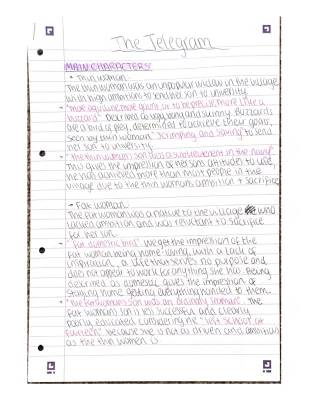 The Telegram
MAIN CHARACTERS:
• Thin woman -
The thin woman was an unpopular widow in the village
with high ambition to send her son to university.
• "more aquiline, more gaunt, or to be precise, more like a
buzzard". Described as very bony and skinny. Buzzards
are a bird of prey, determined to achieve their goals,
seen by thin woman "scrimping and saving" to send
her son to university.
• "The thin woman's son was a sub-lieutenant in the navy"
This gives the impression of person's attitude to life
he has achieved more than most people in the
village due to the thin woman's ambition + sacrifice
• Fat woman -
The fat woman was a native to the village who
lacked ambition and was reluctant to sacrifice
for her son.
• "fat domestic bird". We get the impression of the
fat woman being home-loving, with a lack of
inspiration, a life that serves no purpose and
does not appear to work for anything she has. Being
described as domestic gives the impression of
staying home getting everything handed to them.
• "The fat woman's son was an ordinary seaman". The
fat woman's son is less successful and clearly
poorly educated considering he "left school at
fourteen" because she is not as driven and ambitious
as the thin woman is